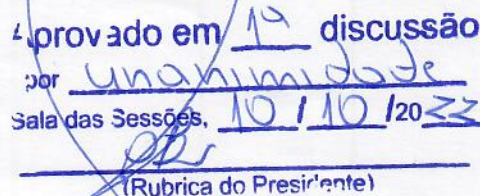 Aprovado em 1ª discussão
por unanimidade
Sala das Sessões, 10 / 10 /2022
(Rubrica do Presidente)